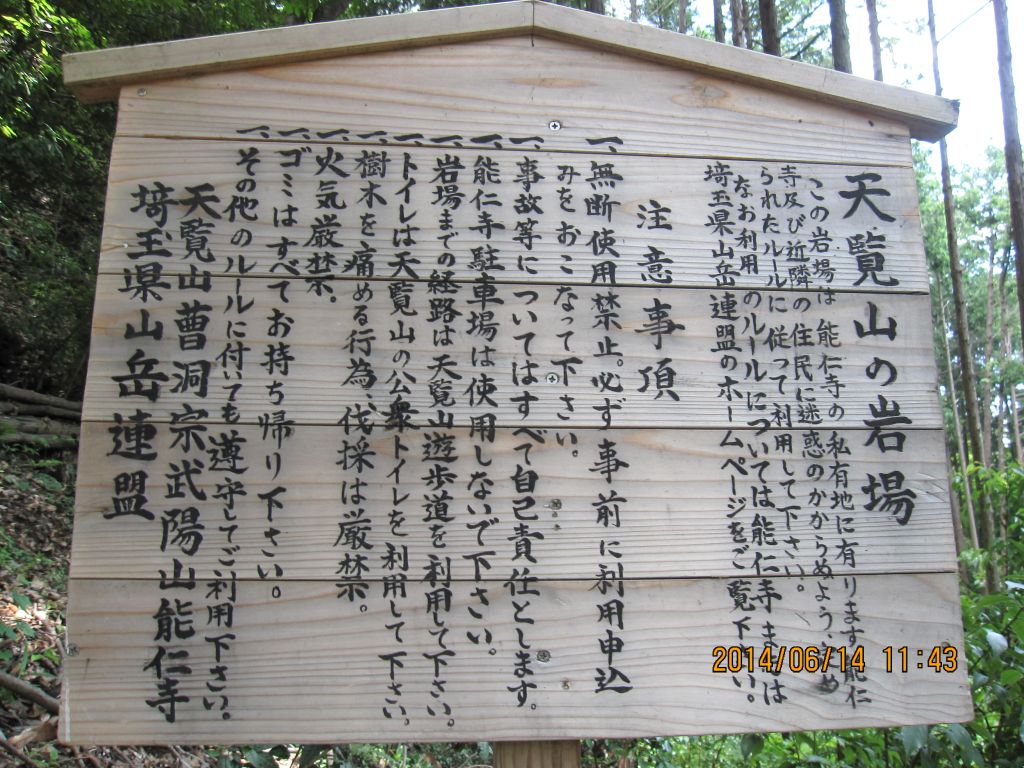 天覧山の岩場
この岩場は能仁寺の私有地に有ります能仁
寺及び近隣の住民に迷惑のかからぬよう、定め
られたルールに従って利用して下さい。
なお利用のルールについては能仁寺または
埼玉県山岳連盟のホームページをご覧下さい。
注意事項
一、無断使用禁止。必ず事前に利用申込
みをおこなって下さい。
一、事故等についてはすべて自己責任とします。
一、能仁寺駐車場は使用しないで下さい。
一、岩場までの経路は天覧山遊歩道を利用して下さい。
一、トイレは天覧山の公衆トイレを利用して下さい。
一、樹木を痛める行為、伐採は厳禁。
一、火気厳禁。
一、ゴミはすべてお持ち帰り下さい。
一、その他のルールに付いても遵守してご利用下さい。
天覧山曹洞宗武陽山能仁寺
埼玉県山岳連盟
2014/06/14 11:43